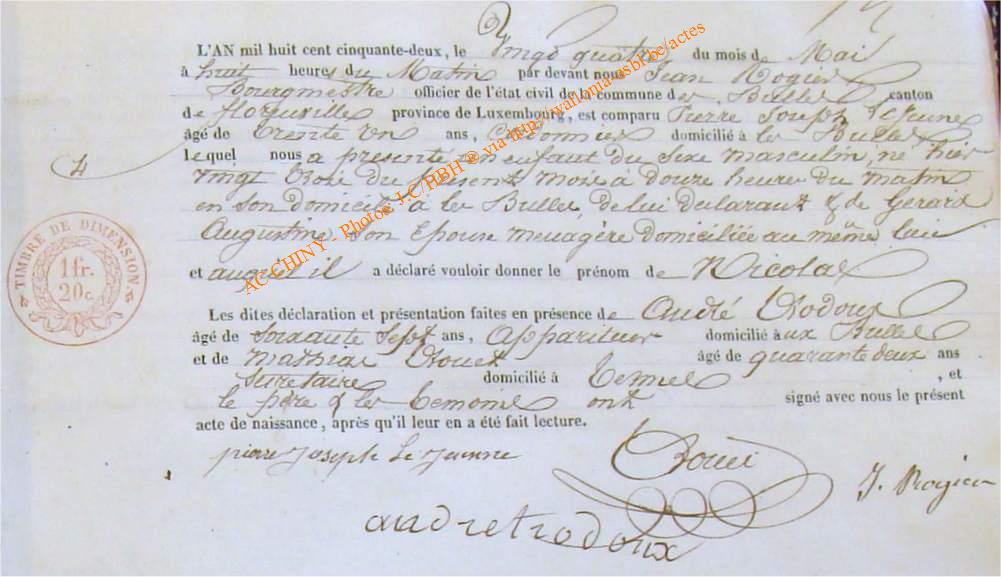 L'AN mil huit cent cinquante-deux, le Vingt quatre du mois de Mai
à huit heures du Matin par devant nous Jean Rogier
Bourgmestre officier de l'état civil de la commune des Bulles canton
de florenville province de Luxembourg, est comparu Pierre Joseph Le Jeune
âgé de trente un ans, domicilié à les Bulles
Lequel nous a presenté un enfant du sexe masculin, né hier
vingt trois du present mois à douze heures du matin
en son domicile à les Bulles, de lui declarant & de Gérard
Augustine son Epouse menagère domiciliée au même lieu
et auquel il a déclaré vouloir donner le prénom de Nicolas
Les dites déclaration et présentation faites en présence de André Trodoux
âgé de soixante sept ans, Appariteur domicilié aux Bulles
et de Mathias âgé de quarante deux ans
Secretaire domicilié à Termes , et
le père & les temoins ont signé avec nous le présent
acte de naissance, après qu'il leur en a été fait lecture.
pierre Joseph Le Jeunne
J. Rogier
andretrodoux
4
TIMBRE DE DIMENSION
1 fr.
20 c.
AC CHINY - Photos J.C/HBH ® via http://wallonia-asbl.be/actes